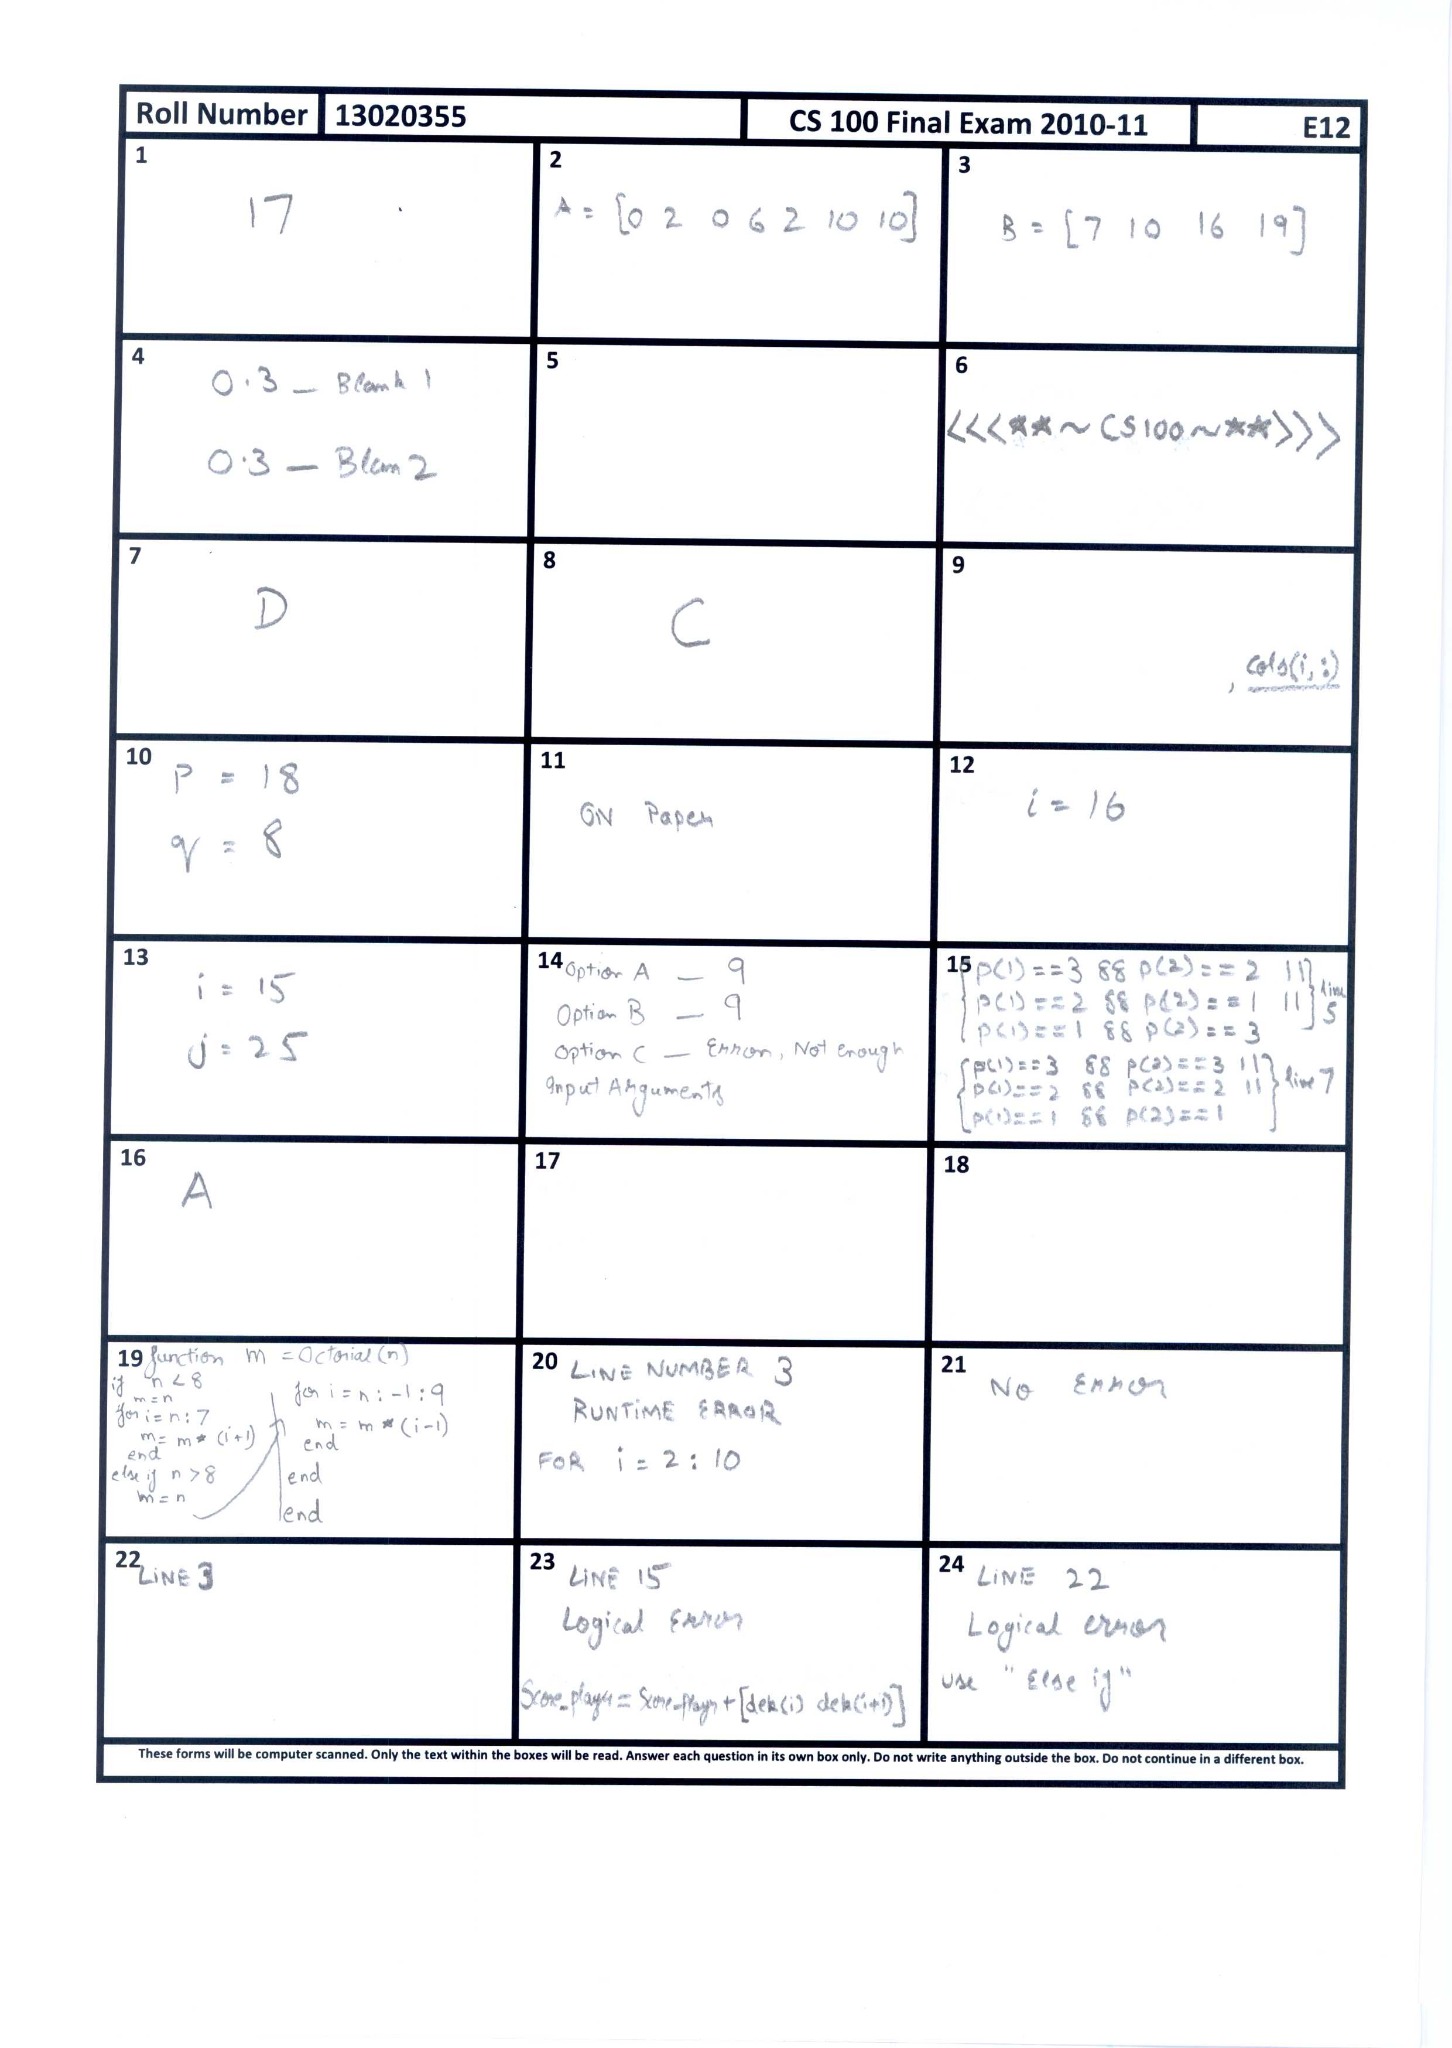 Roll Number 13020355 CS 100 Final Exam 2010-11 E12
1
17
2
A = [0 2 0 6 2 10 10]
3
B = [7 10 16 19]
4
0.3 — Blank 1
0.3 — Blan 2
5
6
<<<**~CS100~**>>>
7
D
8
C
9
, cols(i,:)
10
P = 18
q = 8
11
ON Paper
12
i = 16
13
i = 15
j = 25
14
Option A — 9
Option B — 9
Option C — Error, Not enough
Input Arguments
15
p(1)==3 && p(2)==2 ||
p(1)==2 && p(2)==1 || line
p(1)==1 && p(2)==3 5
p(1)==3 && p(2)==3 ||
p(1)==2 && p(2)==2 || line 7
p(1)==1 && p(2)==1
16
A
17
18
19
function m = Octorial(n)
if n<8
m=n
for i=n:7
m=m*(i+1)
end
else if n>8
m=n
for i=n:-1:9
m=m*(i-1)
end
end
end
20
LINE NUMBER 3
RUNTIME ERROR
FOR i = 2:10
21
NO ERROR
22
LINE 3
23
LINE 15
Logical Error
24
LINE 22
Logical error
use "Else if"
These forms will be computer scanned. Only the text within the boxes will be read. Answer each question in its own box only. Do not write anything outside the box. Do not continue in a different box.